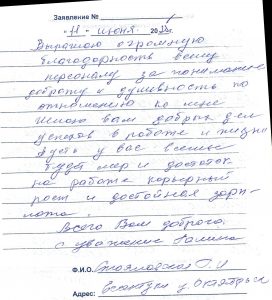 Заявление №
"11" июня 20
Выражаю огромную
благодарность всему
персоналу за понимание
доброту и душевность по
отношению ко мне
Желаю вам добрых дел
успехов в работе и жизни
Пусть у вас всегда
будет мир и достаток
на работе карьерный
рост и достойная зарп-
лата.
Всего Вам доброго.
с уважение Галина
Ф.И.О.
Адрес: Ессентуки у. Октябрьск